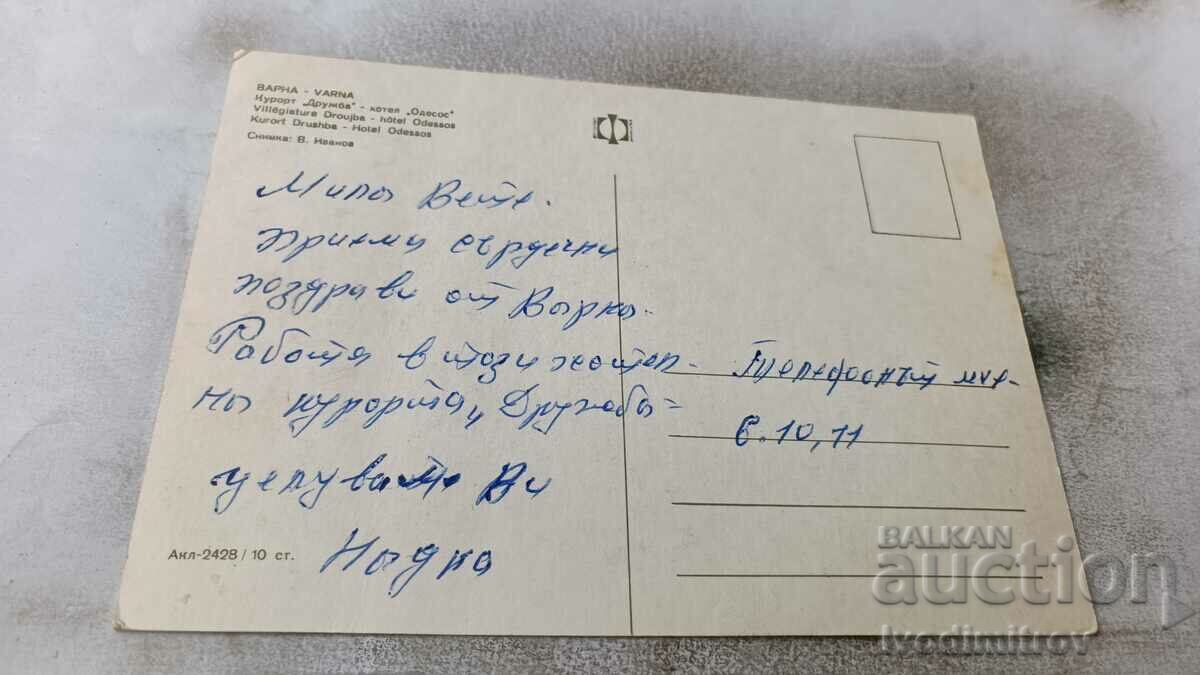 ВАРНА - VARNA
Курорт „Дружба" - хотел „Одесос"
Villégiature Droujba - hôtel Odessos
Kurort Drushba - Hotel Odessos
Снимка: В. Иванов
Мила Вете.
Приеми сърдечни
поздрави от Варна.
Работя в този хотел
на курорта „Дружба"
целувам Ви
Надка
Телефонът ми е
6.10,11
Акл-2428 / 10 ст.
BALKAN
auction
Ivodimitrov